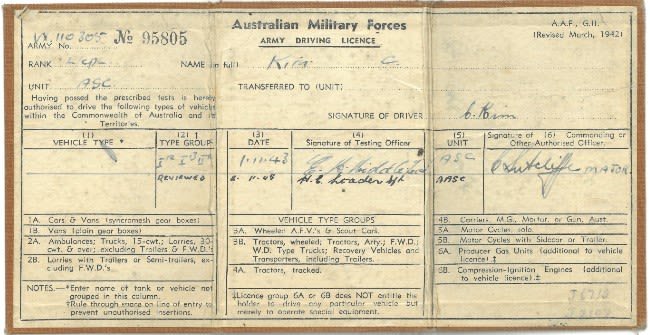 Australian Military Forces
ARMY DRIVING LICENCE
A.A.F., G.11.
(Revised March, 1942)
ARMY No. No 95805
RANK L CPL NAME (in full) C
UNIT ASC TRANSFERRED TO (UNIT)
Having passed the prescribed tests is hereby
authorised to drive the following types of vehicle
within the Commonwealth of Australia and its
Territories.
SIGNATURE OF DRIVER
(1)
VEHICLE TYPE *
(2) †
TYPE GROUP
(3)
DATE
(4)
Signature of Testing Officer
(5)
UNIT
Signature of (6) Commanding or
Other Authorised Officer.
1.11.43 ASC CSutcliffe MAJOR.
REVIEWED .11.45 H.E. Loader AASC
1A. Cars & Vans (syncromesh gear boxes)
1B. Vans (plain gear boxes)
2A. Ambulances; Trucks, 15-cwt.; Lorries, 30-
cwt. & over; excluding Trailers & F.W.D.'s
2B. Lorries with Trailers or Semi-trailers, ex-
cluding F.W.D.'s.
NOTES.—*Enter name of tank or vehicle not
grouped in this column.
†Rule through space on line of entry to
prevent unauthorised insertions.
VEHICLE TYPE GROUPS
3A. Wheeled A.F.V.'s & Scout Cars.
3B. Tractors, wheeled; Tractors, Arty.; F.W.D.;
W.D. Type Trucks; Recovery Vehicles and
Transporters, including Trailers.
4A. Tractors, tracked.
‡Licence group 6A or 6B does NOT entitle the
holder to drive any particular vehicle but
merely to operate special equipment.
4B. Carriers, M.G., Mortar, or Gun, Aust.
5A. Motor Cycles, solo.
5B. Motor Cycles with Sidecar or Trailer.
6A. Producer Gas Units (additional to vehicle
licence).‡
6B. Compression-Ignition Engines (additional
to vehicle licence).‡